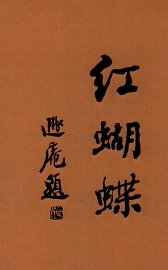 红蝴蝶
遯庵题